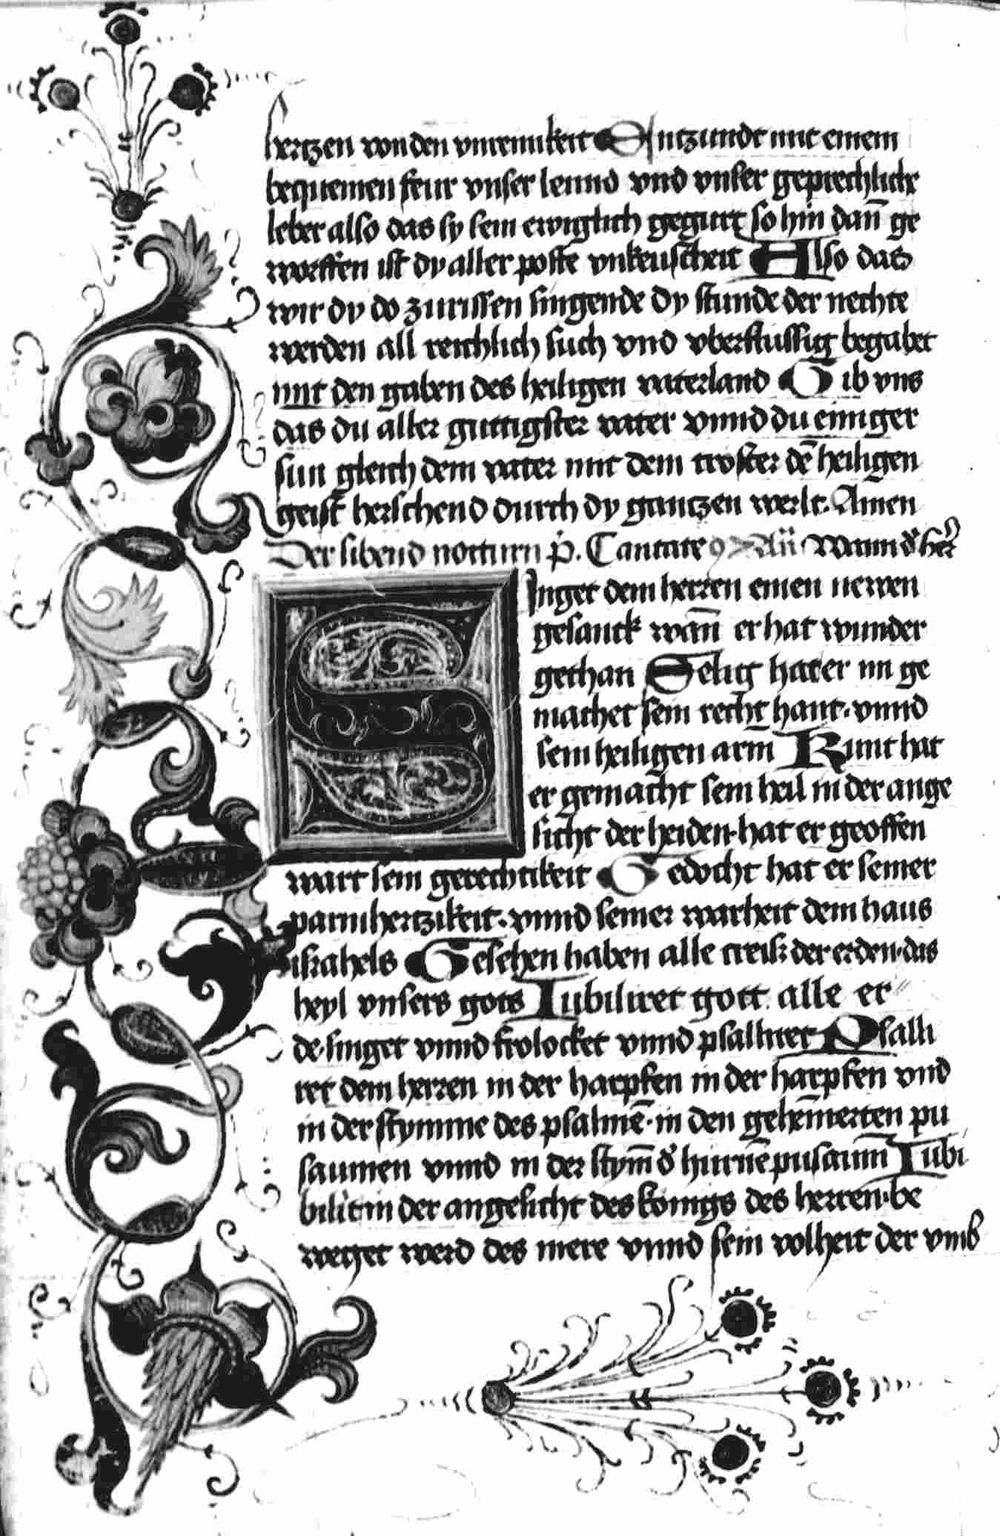 hertzen von den vnreinikeit Entzundt mit einem
bequemen feur vnser lennd vnd vnser geprechlich
leber also das sy sein ewiglich gegurt so hin dañ ge
worffen ist dy aller poste vnkeuscheit Also das
wir dy do zurissen singende dy stunde der nechte
werden all reichlich such vnd vberflussig begabet
mit den gaben des heiligen vaterland Gib vns
das du aller guttigster vater vnnd du einiger
sun gleich dem vater mit dem troster dē heiligen
geist herschend durch dy gantzen werlt. Amen
Der sibend notturn p̄. Cantate Añ Wann d̄ her̄
Singet dem herren einen newen
gesanck wañ er hat wunder
gethan Selig hat er im ge
machet sein recht hant. vnnd
sein heiligen arm Kunt hat
er gemacht sein heil in der ange
sicht der heiden. hat er geoffen
wart sein gerechtikeit Gedocht hat er seiner
parmhertzikeit. vnnd seiner warheit dem haus
israhels Gesehen haben alle creiß der erden. das
heyl vnsers gots Iubiliret gott alle er
de. singet vnnd frolocket vnnd psalliret Psalli
ret dem herren in der harpfen in der harpfen vnd
in der stymme des psalmē. in den gehēmerten pu
saumen vnnd in der stym̄ d̄ hurnē pusaum̄ Iubi
bilirt in der angesicht des konigs des herren. be
weget werd des mere vnnd sein volheit der vmb